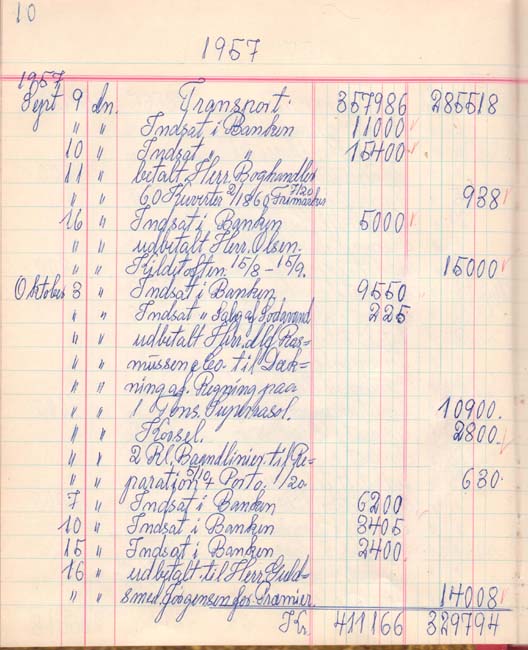 10
1957
1957
Sept 9 dn. Transport. 357986 285518
" " Indsat i Banken 11000
10 " Indsat " " 15400
11 " betalt Herr. Boghandler
" " 60 Kuverter 2/1860 7/20 Frimærker 938
16 " Indsat i Banken 5000
" " udbetalt Herr. Olsen.
" " Kildetoften 15/8 - 15/9. 15000
Oktober 3 " Indsat i Banken 9550
" " Indsat " Salg af Sodavand 225
" " udbetalt Hrr. Alf Ras-
" " mussen & Co. til Dæk-
" " ning af. Regning paa
" " 1 Tons. 10900.
" " Kørsel. 2800.
" " 2 Rl. Baandlinier til Re-
" " paration Porto. 1/20 630.
7 " Indsat i Banken 6200
10 " Indsat i Banken 3405
15 " Indsat i Banken 2400
16 " udbetalt til Herr Guld-
" " smed Jørgensen for. Præmier. 14008
Kr. 411166 329794